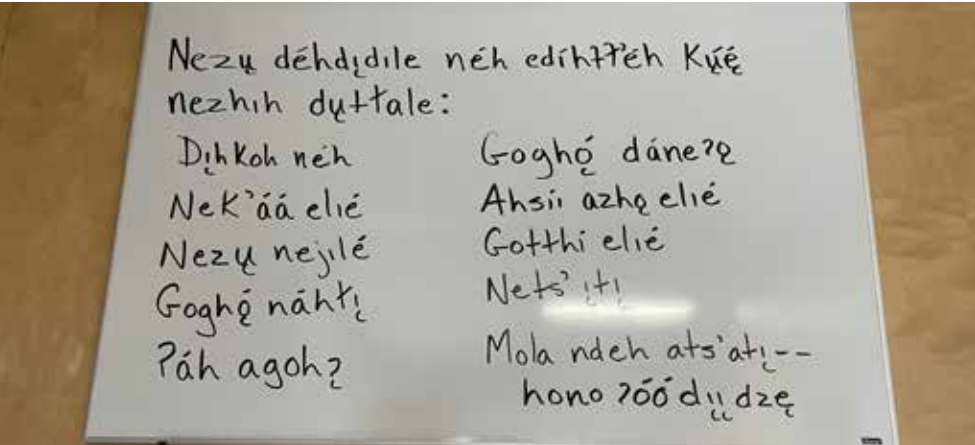 Nezų déhdı̨dıle néh edíhtł'éh Kų́ę́
nezhıh dųtłale:
Dı̨hkoh néh
Nek'áá elıé
Nezų nejı̨lé
Goghǫ́ náhłı̨
Ɂáh agohɂ
Goghǫ́ dáneɂǫ
Ahsíı azhǫ elıé
Gotthı elıé
Nets'ı̨tı̨
Mola ndeh ats'atı̨--
hono ɂóó dı̨ı̨ dzę